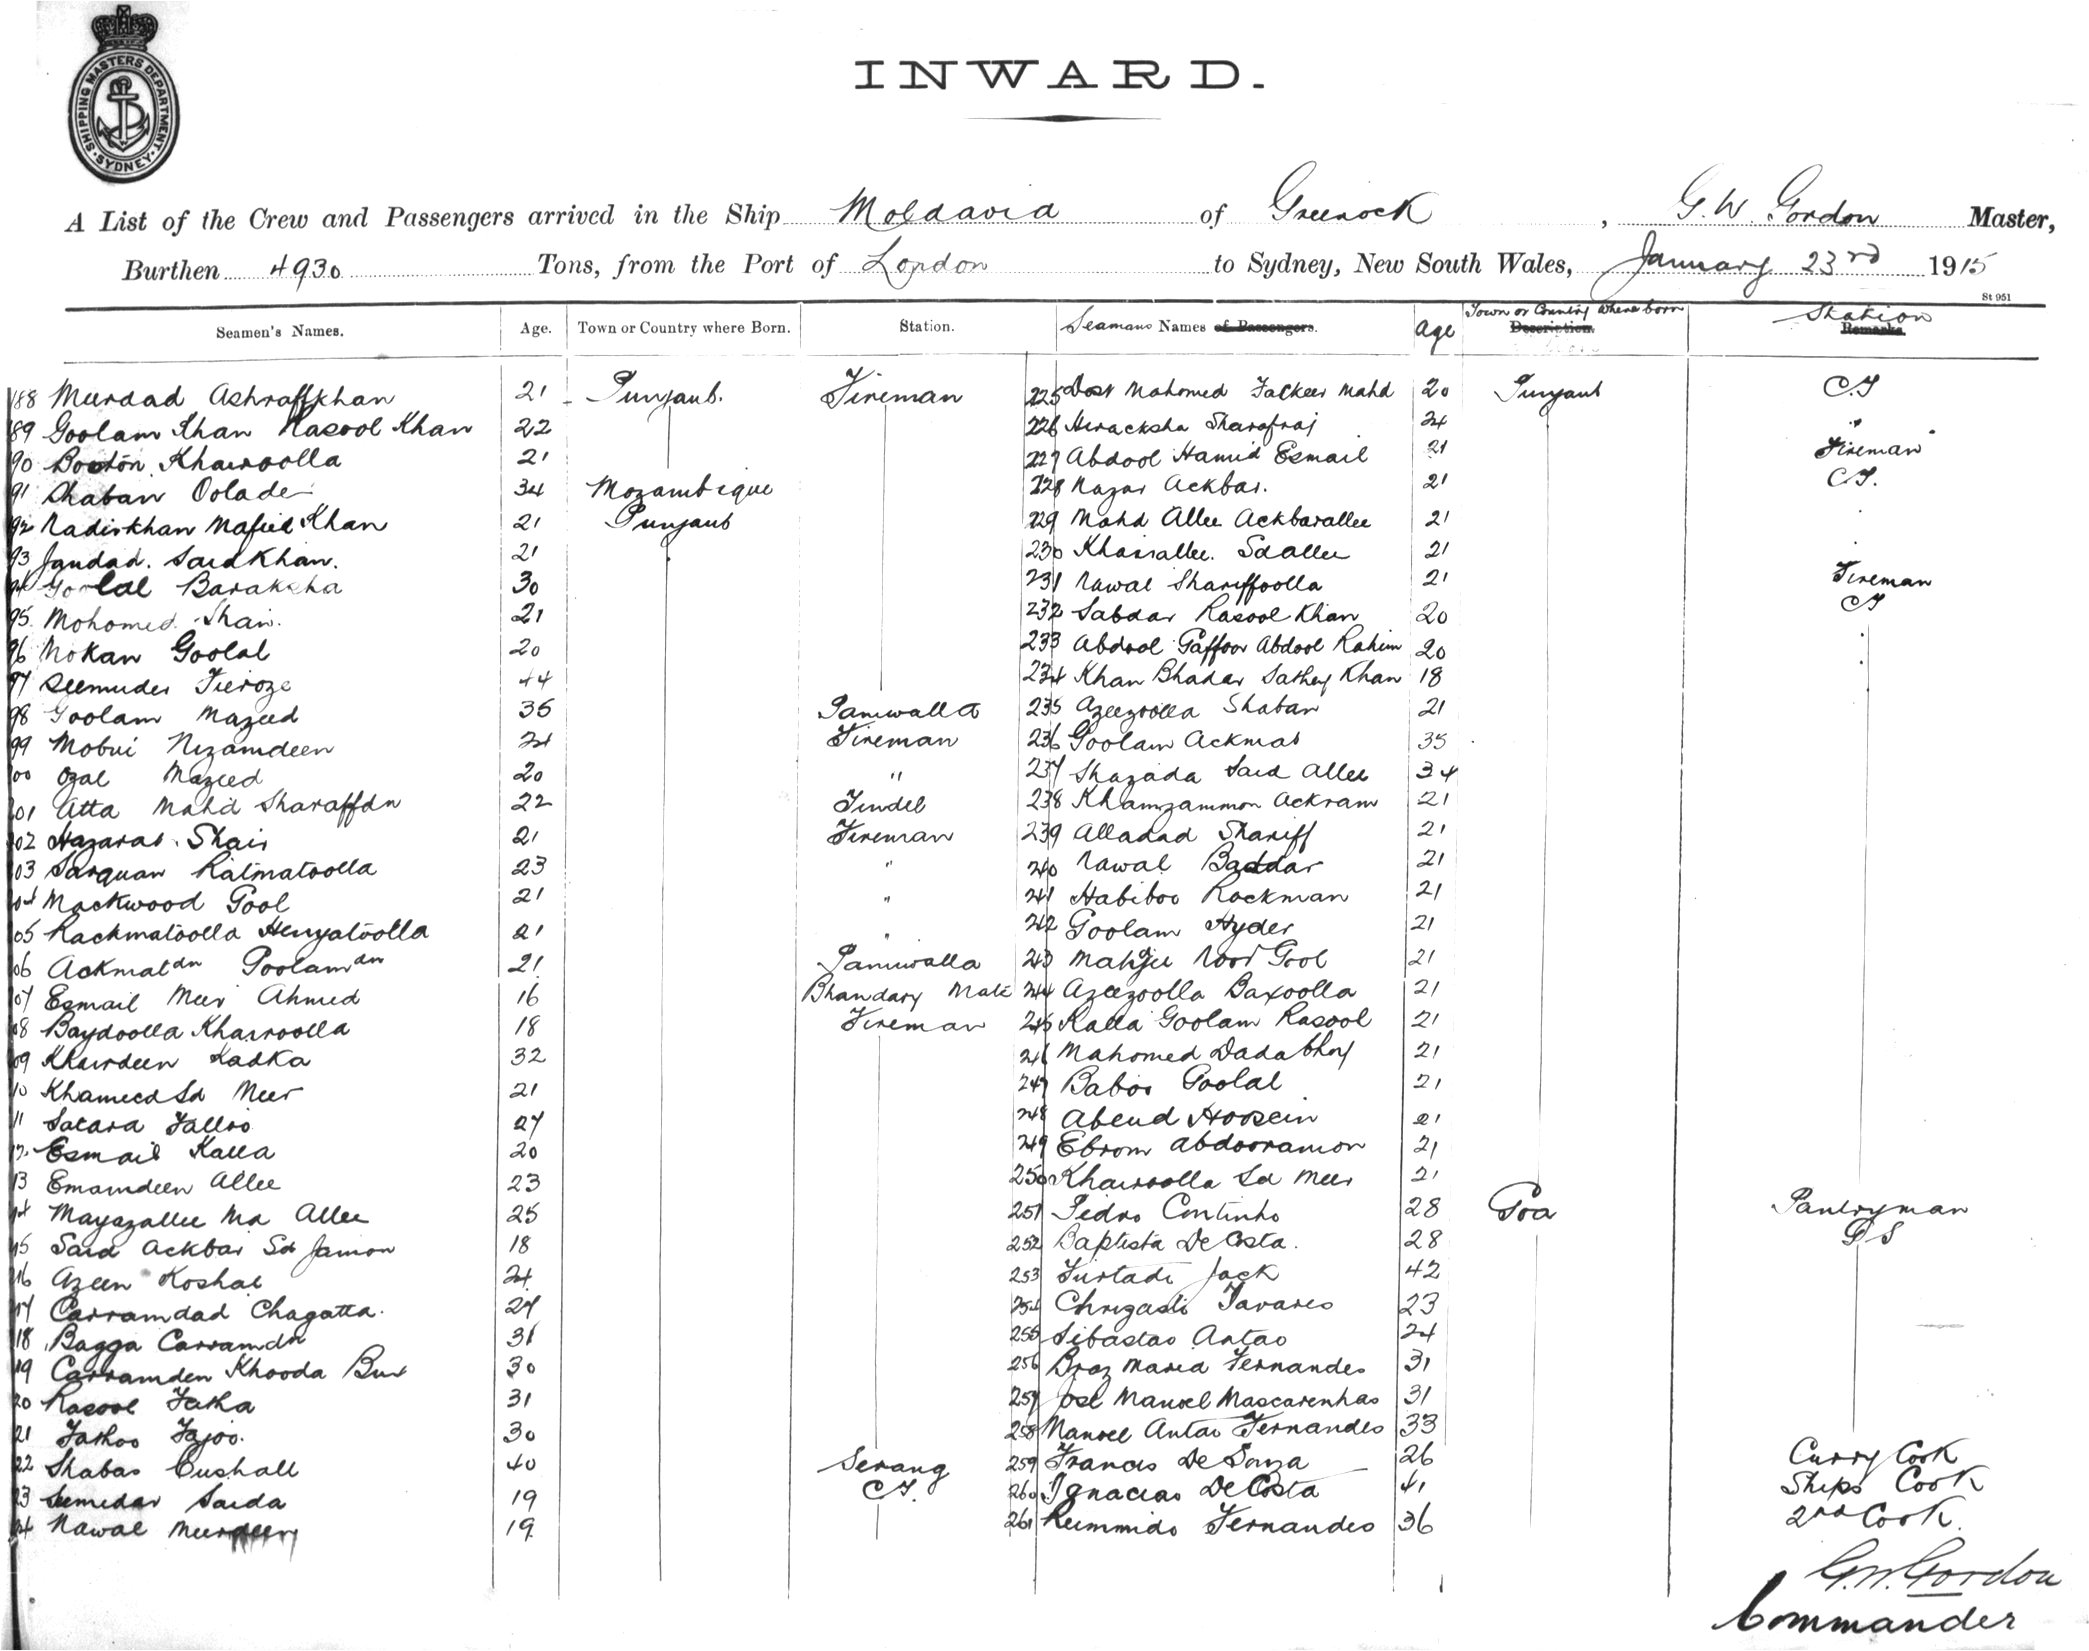 SHIPPING MASTERS DEPARTMENT. SYDNEY
INWARD.
A List of the Crew and Passengers arrived in the Ship Moldavia of Greenock, G. W. Gordon Master,
Burthen 4930 Tons, from the Port of London to Sydney, New South Wales, January 23rd 1915
St 951
Seamen's Names. Age. Town or Country where Born. Station. Seamans Names of Passengers. Age Town or Country where born Description Station Remarks
188 Meerdad Ashraffkhan 21 Punjaub. Fireman 225 Dost Mahomed Fackeer Mahd 20 Punjaub C.T
89 Goolam Khan Rasool Khan 22 226 Heracksha Sharafraj 24 "
90 Boston Khairoolla 21 227 Abdool Hamid Esmail 21 Fireman
91 Shaban Oolade 34 Mozambique 228 Nazar Ackbar. 21 C.T.
92 Nadirkhan Mafeel Khan 21 Punjaub 229 Mahd Allee Ackbarallee 21
93 Jandad. Said Khan. 21 230 Khairallee. Sdallee 21
94 Goolal Baraksha 30 231 Nawal Shariffoolla 21 Fireman
95. Mohomed Shair. 21 232 Sabdar Rasool Khan 20 CT
96 Mokan Goolal 20 233 Abdool Gaffoor Abdool Rahim 20
97 Seemuder Fieroze 44 234 Khan Bhadar Sathey Khan 18
98 Goolam Mazeed 35 Paniwalla 235 Azeezoolla Shaban 21
99 Mobui Nizamdeen 24 Fireman 236 Goolam Ackmat 35
00 Ozal Mazeed 20 " 237 Shazada Said Allee 34
201 Atta Mahd Sharaffdn 22 Tindel 238 Khamzammon Ackram 21
02 Hazarat Shair 21 Fireman 239 Alladad Shariff 21
03 Sarquan Ratmatoolla 23 " 240 Nawal Baddar 21
04 Mackwood Gool 21 " 241 Habiboo Rockman 21
05 Rackmatoolla Henyatoolla 21 " 242 Goolam Hyder 21
06 Ackmatdn Goolamdn 21 Paniwalla 243 Noor Gool 21
07 Esmail Meer Ahmed 16 Bhandary Mate 244 Azeezoolla Baxoolla 21
08 Baydoolla Khairoolla 18 Fireman 245 Kalla Goolam Rasool 21
09 Khairdeen Kadka 32 246 Mahomed Dadabhoy 21
10 Khameed Sd Meer 21 247 Baboo Goolal 21
11 Satara Falloo 27 248 Abeud Hoosein 21
12. Esmail Kalla 20 249 Ebrom Abdooramon 21
13 Emamdeen Allee 23 250 Khairoolla Sd Meer 21
14 Mayazallee Ma Allee 25 251 Pedro Continho 28 Goa Pantryman
15 Said Ackbar Sd Jamon 18 252 Baptista De Costa. 28 G S
216 Azeen Koshal 24 253 Furtado Jack 42
17 Carramdad Chagatta. 27 254 Chrizasto Tavares 23
18 Bagga Carramdn 31 255 Sibastao Antao 24
19 Carramden Khooda Bux 30 256 Braz Maria Fernandes 31
20 Rasool Fatha 31 257 Jose Manoel Mascarenhas 31
21 Fathoo Fajoo. 30 258 Manoel Antao Fernandes 33
22 Shabas Cushall 40 Serang 259 Francis De Souza 26 Curry Cook
23 Seemedar Saida 19 C.T. 260 Ignacias De Costa 41 Ships Cook
24 Nawal Meerdeen 19 261 Remmido Fernandes 36 2nd Cook.
G. W. Gordon
Commander